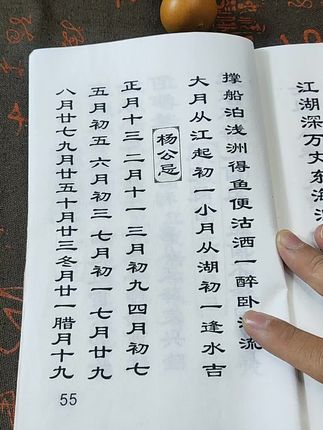 江湖深万丈东海
撑船泊浅洲得鱼便沽酒一醉卧 流
大月从江起初一小月从湖初一逢水吉
杨公忌
正月十三二月十一三月初九四月初七
五月初五六月初三七月初一七月廿九
八月廿七九月廿五十月廿三冬月廿一腊月十九
55